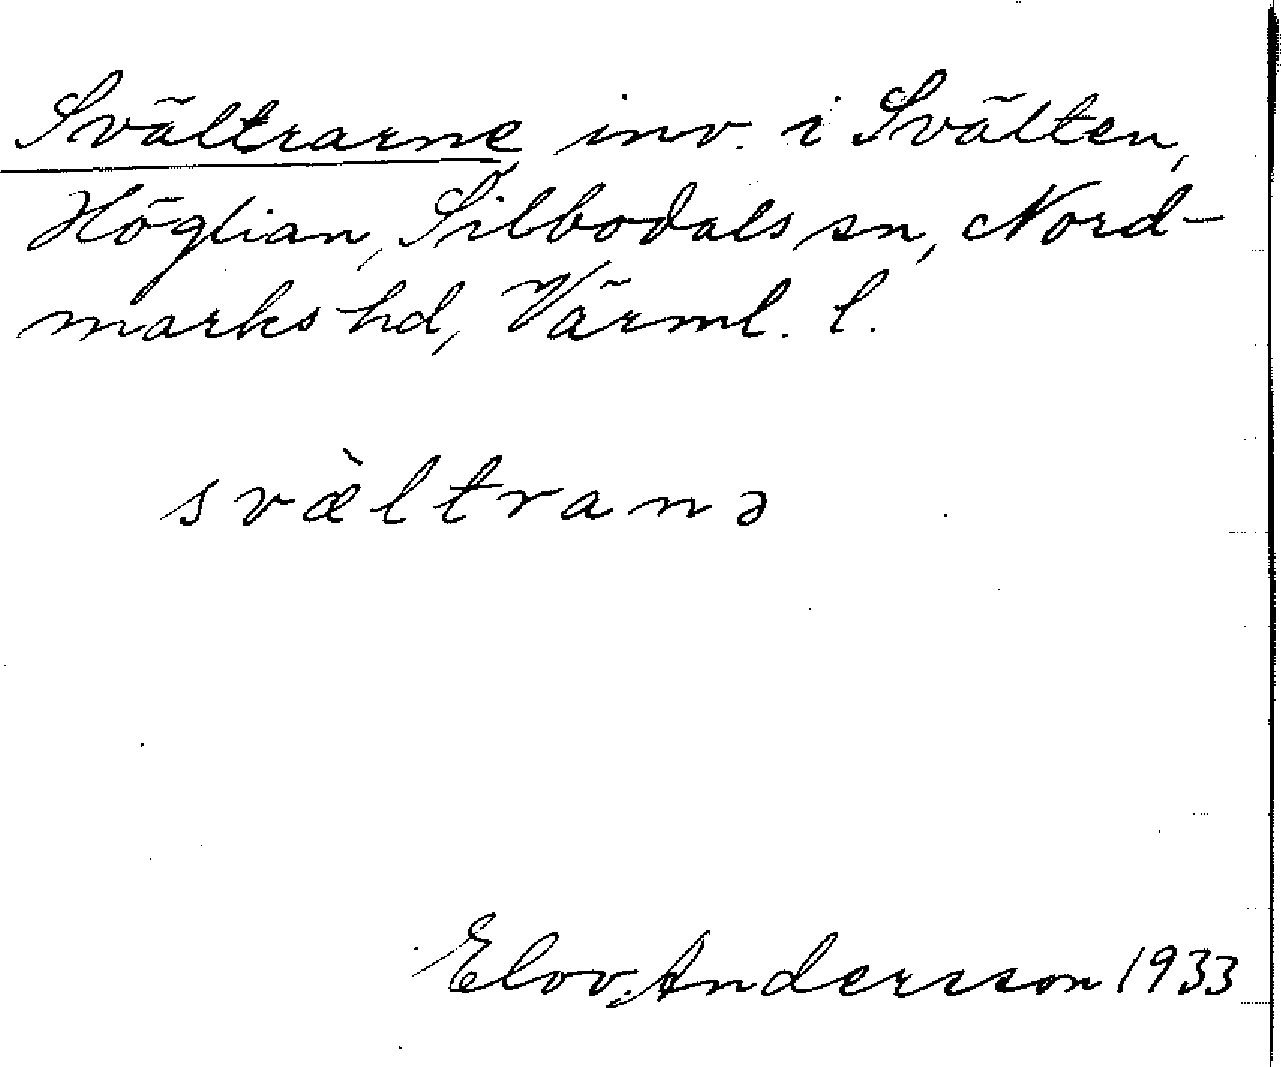 Svältrarne inv. i Svälten,
Höglian, Silbodals sn, Nord-
marks hd, Värml. l.
svæ̀ltranə
Elov. Andersson 1933